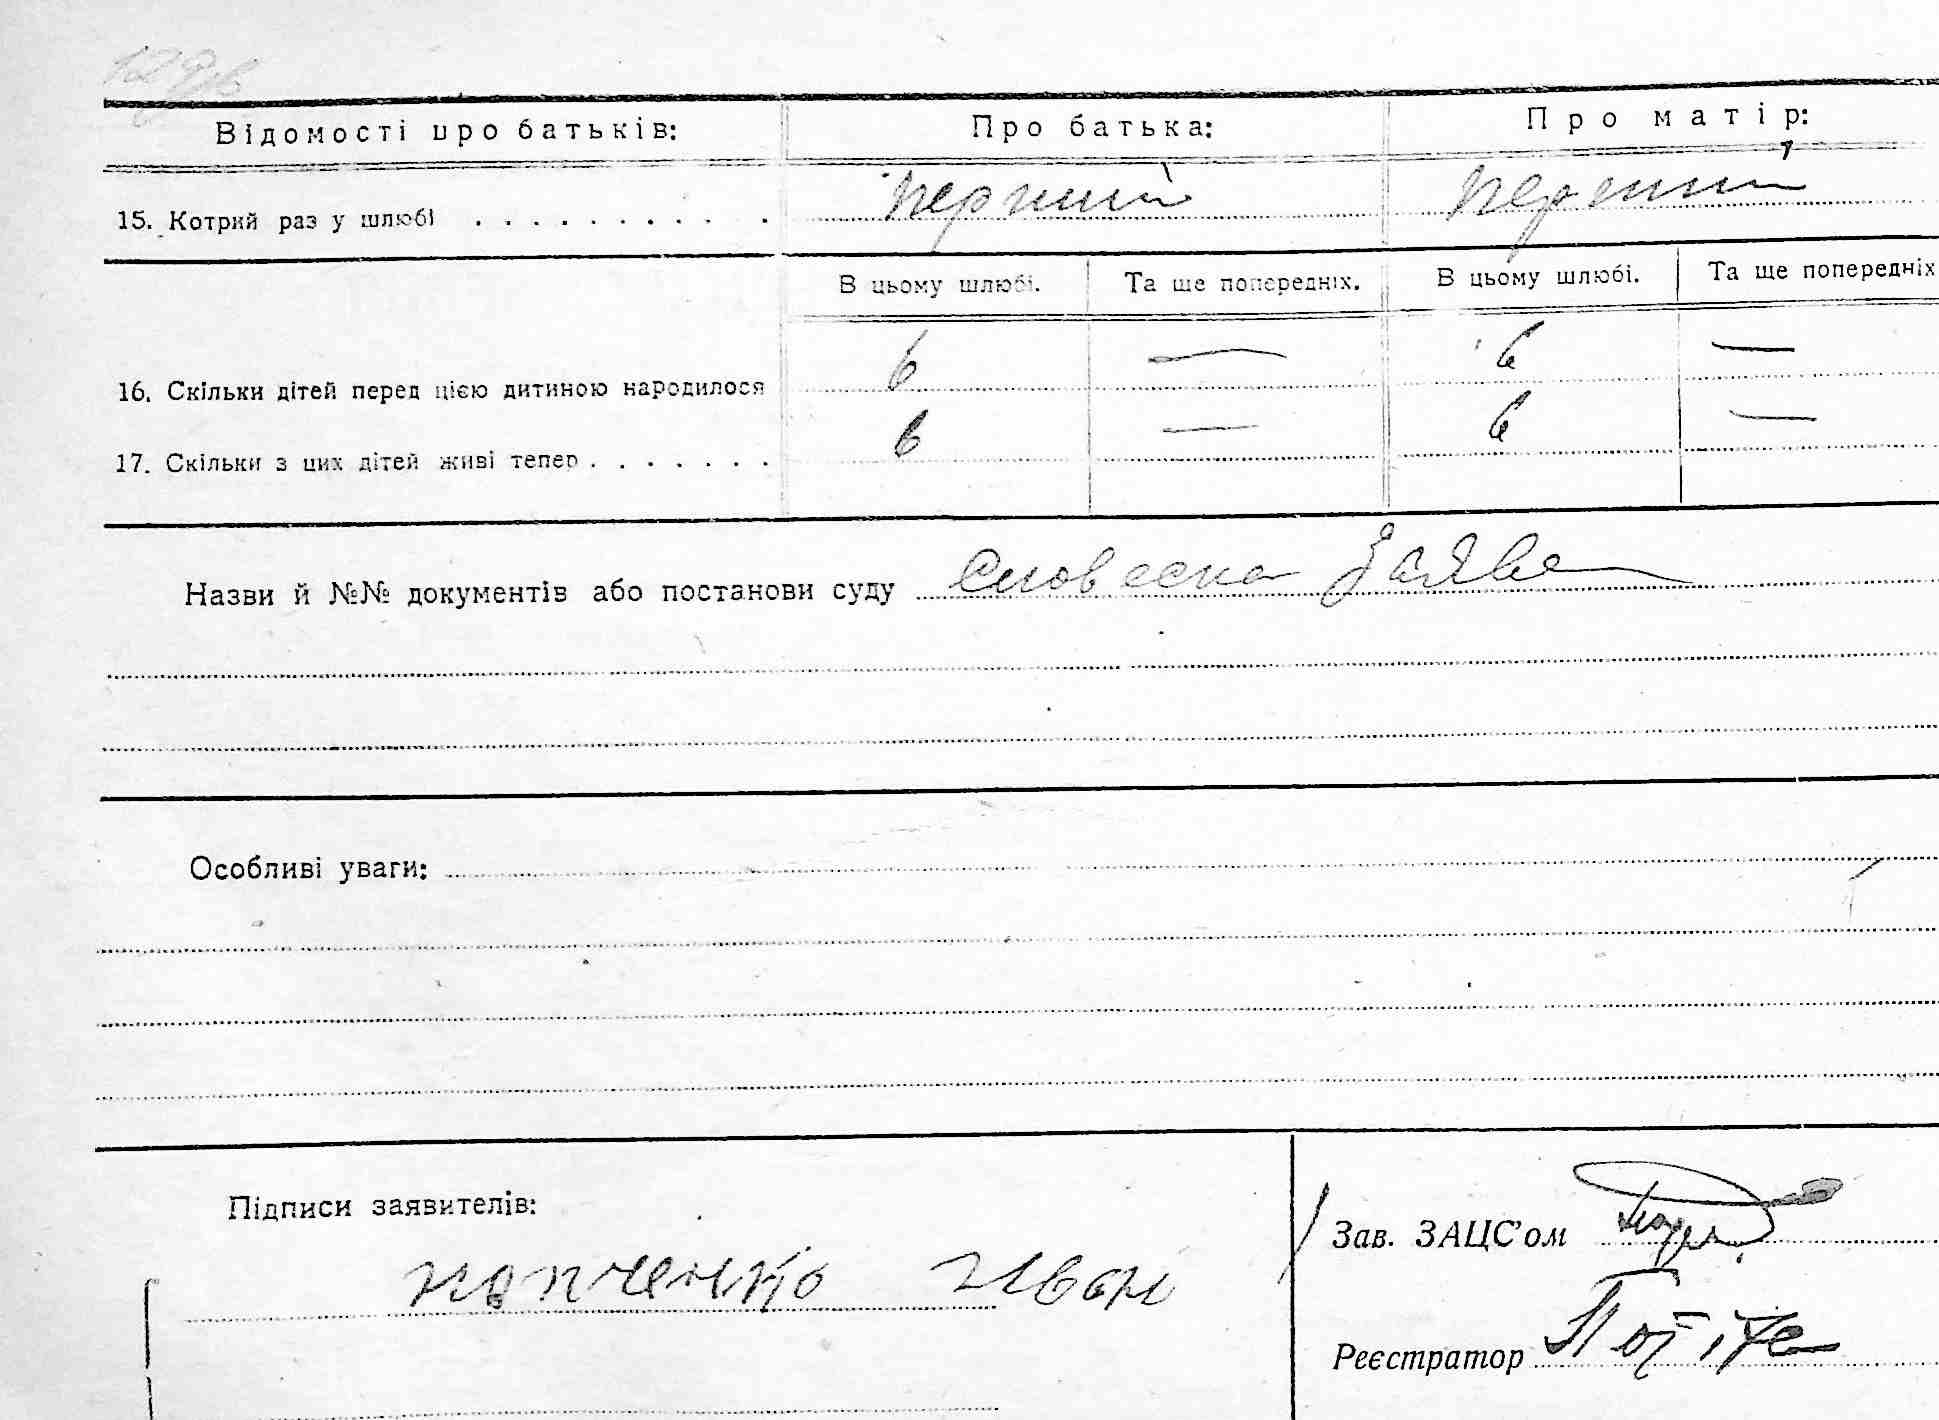 Відомості про батьків: Про батька: Про матір:
15. Котрий раз у шлюбі . . . . . . . . . . перший перший
В цьому шлюбі. Та ще попередніх. В цьому шлюбі. Та ще попередніх
16. Скільки дітей перед цією дитиною народилося 6 — 6 —
17. Скільки з цих дітей живі тепер . . . . . . . 6 — 6 —
Назви й №№ документів або постанови суду словесна заява
Особливі уваги:
Підписи заявителів:
Зав. ЗАЦС'ом
Іван
Реєстратор